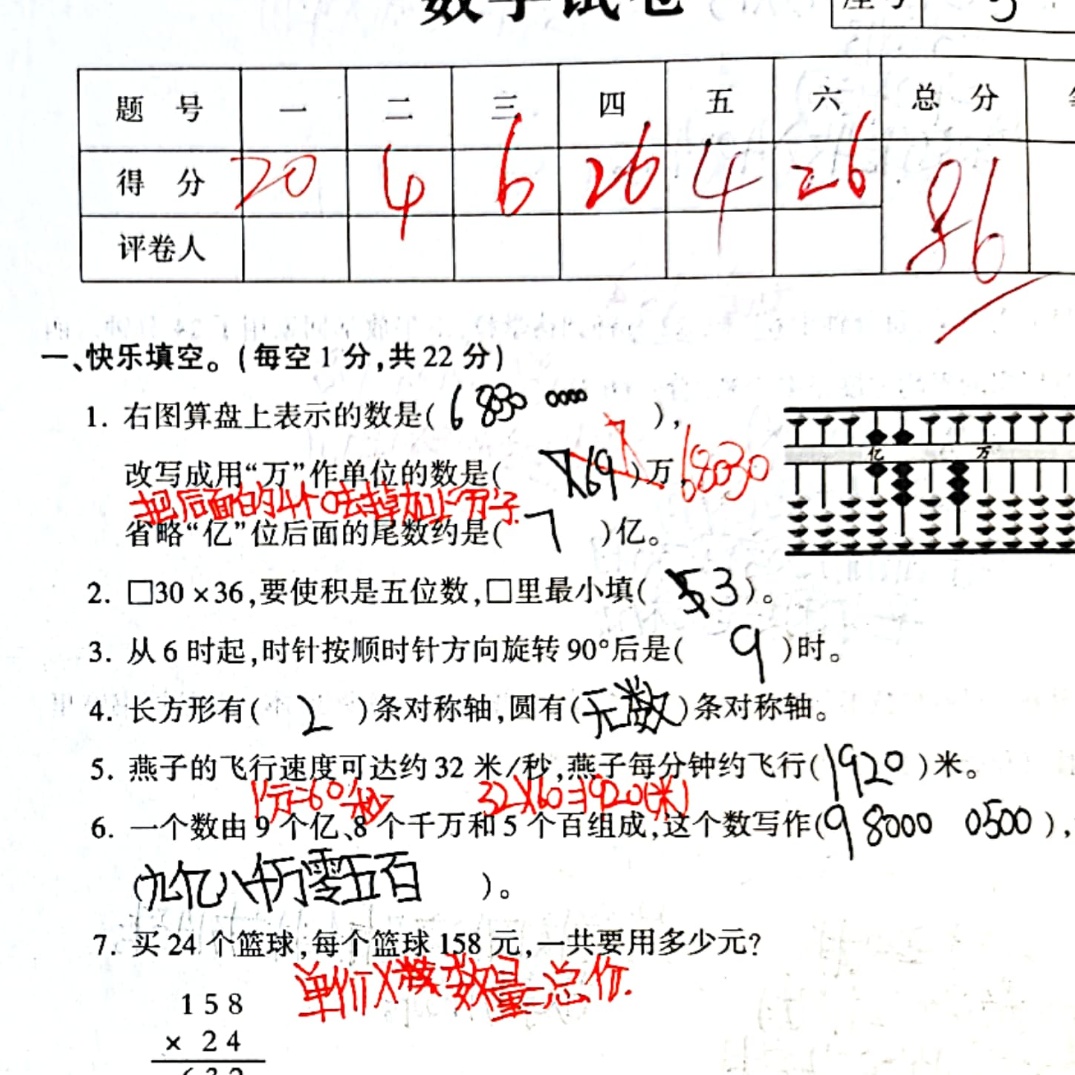 数学试卷
题 号 一 二 三 四 五 六 总 分
得 分 20 4 6 26 4 26 86
评卷人
一、快乐填空。(每空1分,共22分)
1. 右图算盘上表示的数是( 6 8030 0000 ),
亿 万
改写成用“万”作单位的数是( )万 68030
把后面的4个0去掉加上个万字.
省略“亿”位后面的尾数约是( 7 )亿。
2. □30×36,要使积是五位数,□里最小填( 3 )。
3. 从6时起,时针按顺时针方向旋转90°后是( 9 )时。
4. 长方形有( 2 )条对称轴,圆有(无数)条对称轴。
5. 燕子的飞行速度可达约32米/秒,燕子每分钟约飞行(1920)米。
1分=60秒 32×60=1920(米)
6. 一个数由9个亿、8个千万和5个百组成,这个数写作(9 8000 0500),
(九亿八千万零五百 )。
7. 买24个篮球,每个篮球158元,一共要用多少元?
单价×数量=总价.
158
× 24
632